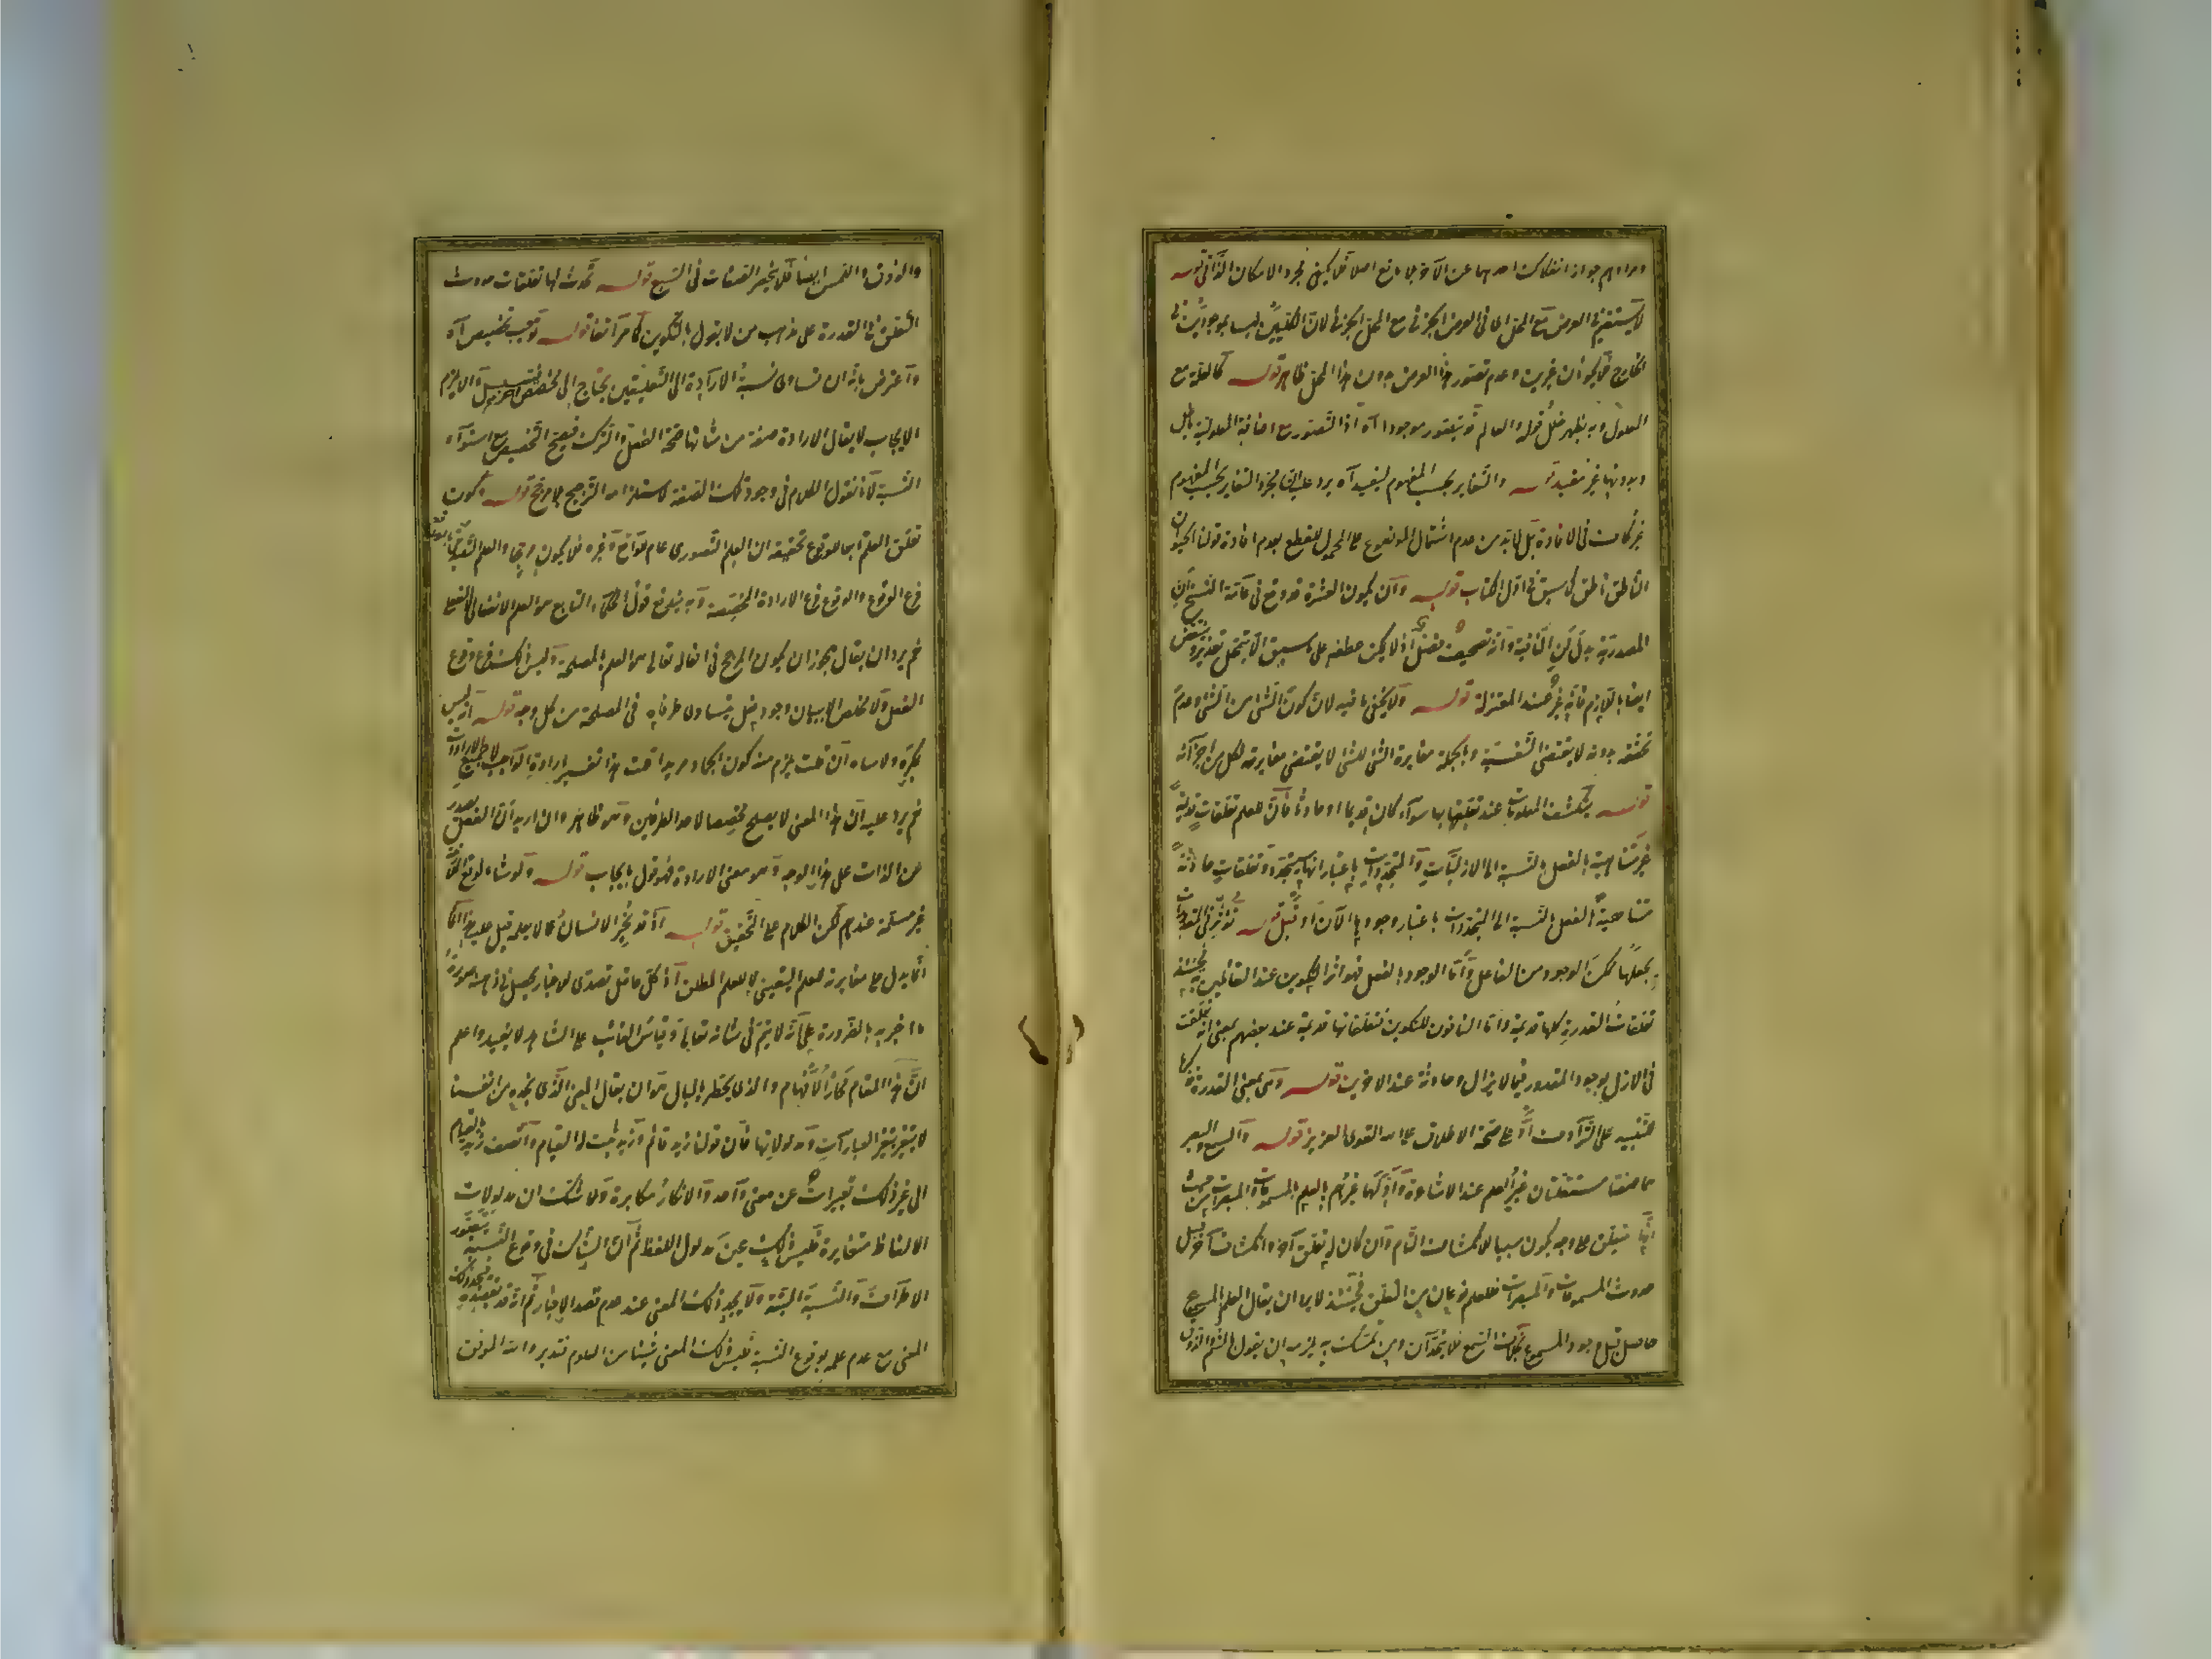 ومرادهم جواز انفكاك احدهما عن الآخر بلا مانع اصلا فلا يكفي مجرد الامكان الذاتي قوله
لا يستقيم في العرض مع المحل اي في العرض الجزئي مع المحل الجزئي لان الكليين ليسا بموجودين في
الخارج فلا يجوز ان غيرين وعدم تصور هذا العرض بدون هذا المحل ظاهر قوله كالعلة مع
المعلول وبه يظهر خلل قوله والعالم قد يتصور موجودا آه اذ التصور مع اضافة المعلولية باطل
وبدونها غير مفيد قوله والتغاير بحسب المفهوم ليفيد آه يرد عليه ان مجرد التغاير بحسب المفهوم
غير كاف في الافادة بل لا بد من عدم اشتمال الموضوع على المحمول للقطع بعدم افادة قولنا الحيوان
الناطق ناطق كما سبق في اول الكتاب قوله وان يكون العشرة قد وقع في عامة النسخ ان
المصدرية بدل لن النافية وانه تصحيف فضل اذ لا يمكن عطفه على ما سبق الا بتمحل تقدير وينتقض
ايضا باللازم فانه غير عند المعتزلة قوله ولا يخفى ما فيه لان كون الشئ من الشئ وعدم
تحققه بدونه لا يقتضي النفسية وبالجملة مغايرة الشئ للشئ لا يقتضي مغايرته لكل من اجزائه
قوله ينكشف المعلومات عند تعلقها بها سواء كان قديما او حادثا فان للعلم تعلقات قديمة
غير متناهية بالفعل بالنسبة الى الازليات والمتجددات باعتبار انها ستتجدد وتعلقات حادثة
متناهية بالفعل بالنسبة الى المتجددات باعتبار وجودها الآن او قبل قوله تؤثر في المقدورات
بجعلها ممكن الوجود من الفاعل واما الوجود بالفعل فهو اثر التكوين عند القائلين به فحينئذ
تعلقات القدرة كلها قديمة واما النافون للتكوين فتعلقاتها قديمة عند بعضهم بمعنى انها تعلقت
في الازل بوجود المقدور فيما لا يزال وحادثة عند الآخرين قوله وهي بمعنى القدرة
تنبيه على الترادف او على صحة الاطلاق على الله القوي العزيز قوله والسمع والبصر
هما صفتان مستقلتان غير العلم عند الاشاعرة واولهما غيرهم بالعلم بالمسموعات والمبصرات من حيث
انها تتعلق على وجه يكون سببا للانكشاف التام وان كان له تعلق آخر وانكشاف آخر قبل
حدوث المسموعات والمبصرات فللعلم نوعان من التعلق فحينئذ لا يرد ان يقال العلم بالمسموع
حاصل قبل وجود المسموع بخلاف السمع فلا يتحدان ومن تمسك به يلزمه ان يقول بالشم والذوق
والذوق واللمس ايضا فلا ينحصر الصفات في السبع قوله تحدث لها تعلقات حدوث
التعلق في القدرة على مذهب من لا يقول بالتكوين كما مر آنفا قوله توجب تخصيص آه
واعترض بانه ان تساوى نسبة الارادة الى التعلقين يحتاج الى مخصص آخر والا يلزم
الايجاب لا يقال الارادة صفة من شأنها صحة الفعل والترك فيصح التخصيص مع استواء
النسبة لانا نقول الكلام في وجود تلك الصفة لاستلزامه الترجيح بلا مرجح قوله وكون
تعلق العلم تابعا للوقوع تحقيقه ان العلم التصوري عام للواقع وغيره فلا يكون مرجحا والعلم التصديقي بالوقوع
فرع الوقوع والوقوع فرع الارادة المخصصة وبه يندفع قول الحكماء التابع هو العلم الانفعالي لا الفعلي
ثم يرد ان يقال يجوز ان يكون المرجح في افعاله تعالى هو العلم بالمصلحة وليس ذلك فرع وقوع
الفعل ولا مخلص الا ببيان وجود فعل يتساوى طرفاه في المصلحة من كل وجه قوله انه ليس
بمكره ولا ساه ان قلت يلزم منه كون الجماد مريدا قلت هذا تفسير ارادة الواجب لا مطلق الارادة
ثم يرد عليه ان هذا المعنى لا يصلح مخصصا لاحد الطرفين وهو ظاهر وان اريد ان الفعل يصدر
عن الذات على هذا الوجه وهو معنى الارادة فهو قول بايجاب قوله ولو شاء لوقع
غير مسلمة عندهم لكن الكلام على التحقيق قوله اذ قد يخبر الانسان عما لا يعلمه قيل عليه هذا
انما يدل على مغايرته للعلم اليقيني لا للعلم المطلق اذ كل عاقل تصدى للاخبار يحصل في ذهنه صورة
ما اخبر به بالضرورة على انه لا يتم في شانه تعالى وقياس الغائب على الشاهد لا يفيد واعلم
ان هذا المقام محار الافهام والذي يخطر بالبال هو ان يقال المعنى الذي نجده من انفسنا
لا يتغير بتغير العبارات ومدلولاتها فان قولنا زيد قائم وزيد ثبت له القيام واتصف زيد بالقيام
الى غير ذلك تعبيرات عن معنى واحد والانكار مكابرة ولا شك ان مدلولات
الالفاظ متغايرة فليس ذلك عين مدلول اللفظ ثم ان الشاك في وقوع النسبة يتصور
الاطراف والنسبة البتة ولا يجد ذلك المعنى عند عدم قصد الاخبار ثم انه قد يقصد
المعنى مع عدم علمه بوقوع النسبة فليس ذلك المعنى شيئا من العلوم فتدبر والله الموفق